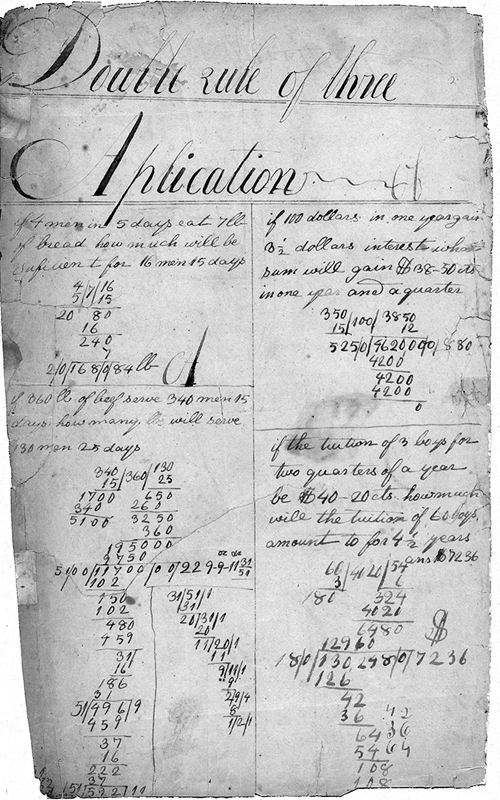 Double rule of three
Aplication
if 4 men in 5 days eat 7 lb
of bread how much will be
sufficient for 16 men 15 days
4/7/16
5/ /15
20 80
16
240
7
2/0/168/0/84 lb
if 360 lb of beef serve 340 men 15
days how many lbs will serve
130 men 25 days
340 /360/ 130
15 25
1700 650
340 260
5100 3250
360
195000
9750
51/00/11700/0 0/229-9-11 31/51
102
150
102
480
459
31/51/1
31
20/31/1
20
11/20/1
11
9/11/1
9
2/9/4
8
1/2/1
31/
16
186
31
51/496/9
459
37
16
222
37
51/592/11
if 100 dollars in one year gain
3½ dollars interest what
sum will gain $38-50 cts
in one year and a quarter
350/100/3850
15/ 12
5250/4620000/880
4200
4200
4200
0
if the tuition of 3 boys for
two quarters of a year
be $40-20 cts. how much
will the tuition of 60 boys
amount to for 4½ years
ans $7236
60 /4020/ 54
3 6
180 324
4020
6480
12960
18/0/130248/0/7236
126
42
36
64
54
108
108
42
36
64